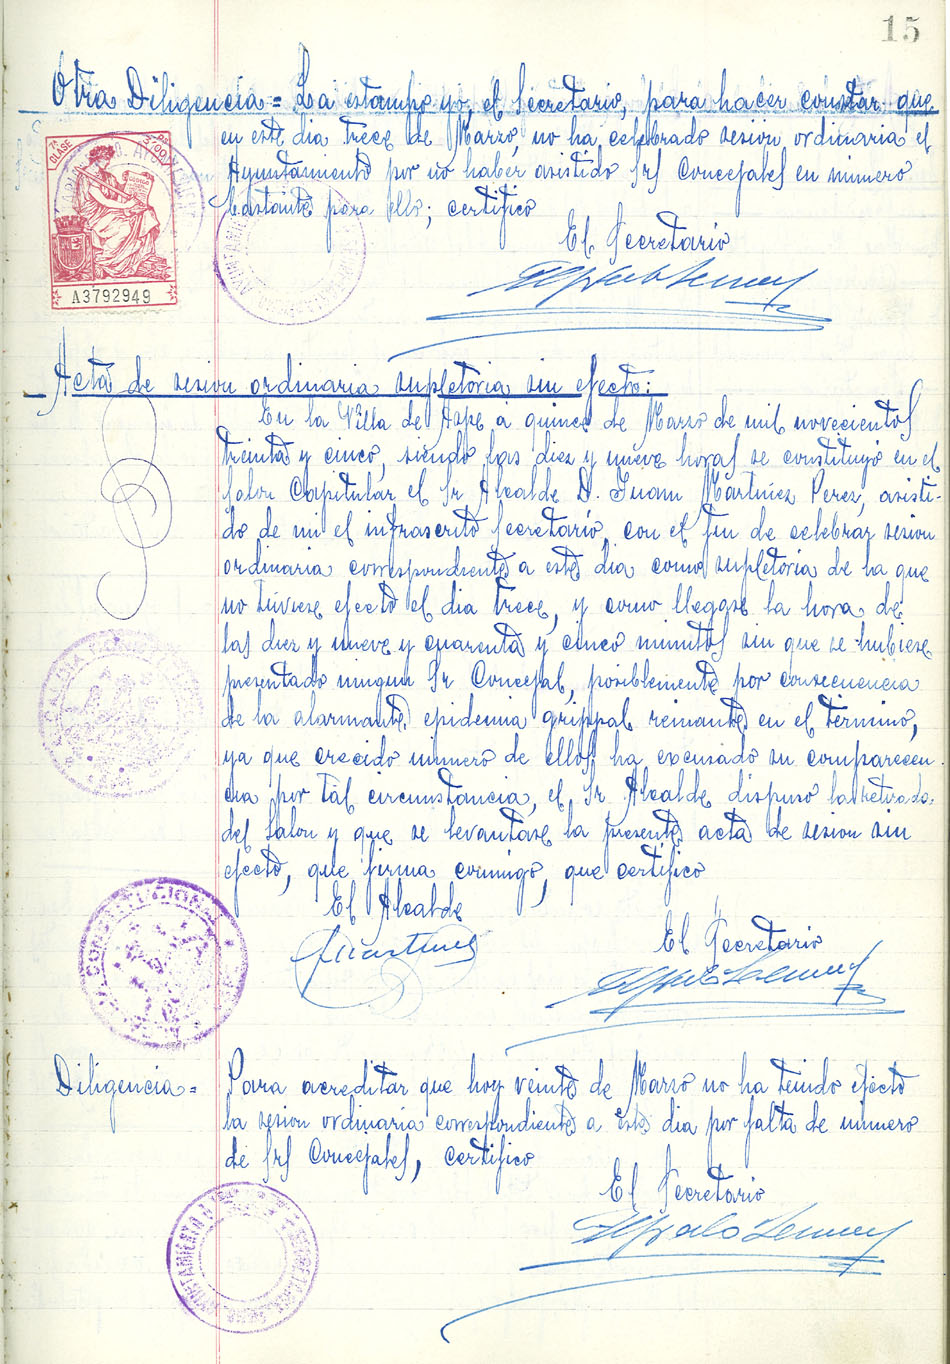 15
Otra Diligencia = La estampo yo, el Secretario, para hacer constar que
en este dia trece de Marzo, no ha celebrado sesion ordinaria el
Ayuntamiento por no haber asistido Srs Concejales en número
bastante para ello; certifico
El Secretario
7ª CLASE
A3792949
Acta de sesion ordinaria supletoria sin efecto:
En la Villa de Aspe a quince de Marzo de mil novecientos
treinta y cinco, siendo las diez y nueve horas se constituyó en el
Salon Capitular el Sr Alcalde D. Juan Martinez Perez, asisti-
do de mi el infrascrito Secretario, con el fin de celebrar sesion
ordinaria correspondiente a este dia como supletoria de la que
no tuviese efecto el dia trece, y como llegase la hora de
las diez y nueve y cuarenta y cinco minutos sin que se hubiese
presentado ningun Sr Concejal, posiblemente por consecuencia
de la alarmante epidemia grippal reinante en el término,
ya que crecido número de ellos ha excusado su comparecen
cia por tal circunstancia, el Sr Alcalde dispuso la retirada
del Salon y que se levantase la presente acta de sesion sin
efecto, que firma conmigo, que certifico
El Alcalde
El Secretario
JMartinez
Diligencia = Para acreditar que hoy veinte de Marzo no ha tenido efecto
la sesion ordinaria correspondiente a este dia por falta de número
de Srs Concejales, certifico
El Secretario